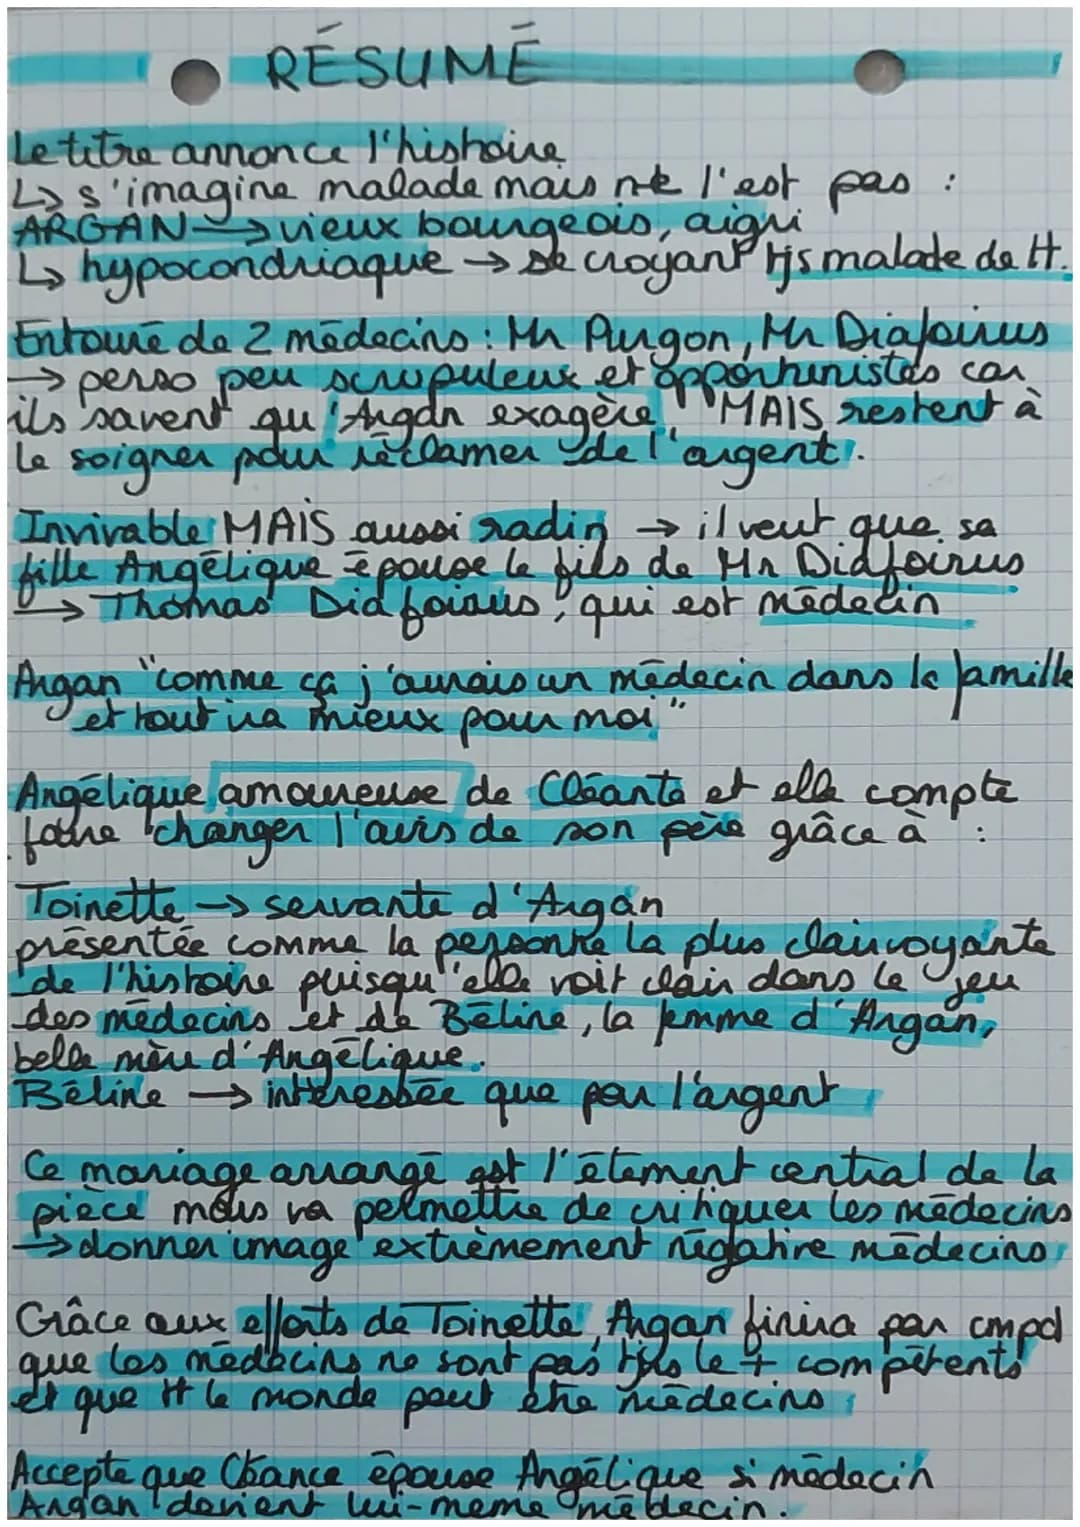 RÉSUMÉ
Le titre annonce l'histoire
↳ s'imagine malade mais ne l'est pas :
ARGAN → vieux bourgeois, aigri
↳ hypocondriaque → se croyant tjs malade de tt.
Entouré de 2 médecins : Mr Purgon, Mr Diafoirus
→ perso peu scrupuleux et opportunistes car
ils savent qu'Argan exagère MAIS restent à
le soigner pour réclamer de l'argent.
Invivable MAIS aussi radin → il veut que sa
fille Angélique épouse le fils de Mr Diafoirus
→ Thomas Diafoirus, qui est médecin
Argan "comme ça j'aurais un médecin dans la famille
et tout ira mieux pour moi"
Angélique amoureuse de Cléante et elle compte
faire changer l'avis de son père grâce à :
Toinette → servante d'Argan
présentée comme la personne la plus clairvoyante
de l'histoire puisqu'elle voit clair dans le jeu
des médecins et de Béline, la femme d'Argan,
belle mère d'Angélique.
Béline → intéressée que par l'argent
Ce mariage arrangé est l'élément central de la
pièce mais va permettre de critiquer les médecins
→ donner image extrêmement négative médecins
Grâce aux efforts de Toinette, Argan finira par cmpd
que les médecins ne sont pas tjrs le + compétents
et que tt le monde peut être médecins
Accepte que Cléance épouse Angélique si médecin
Argan devient lui-même médecin.